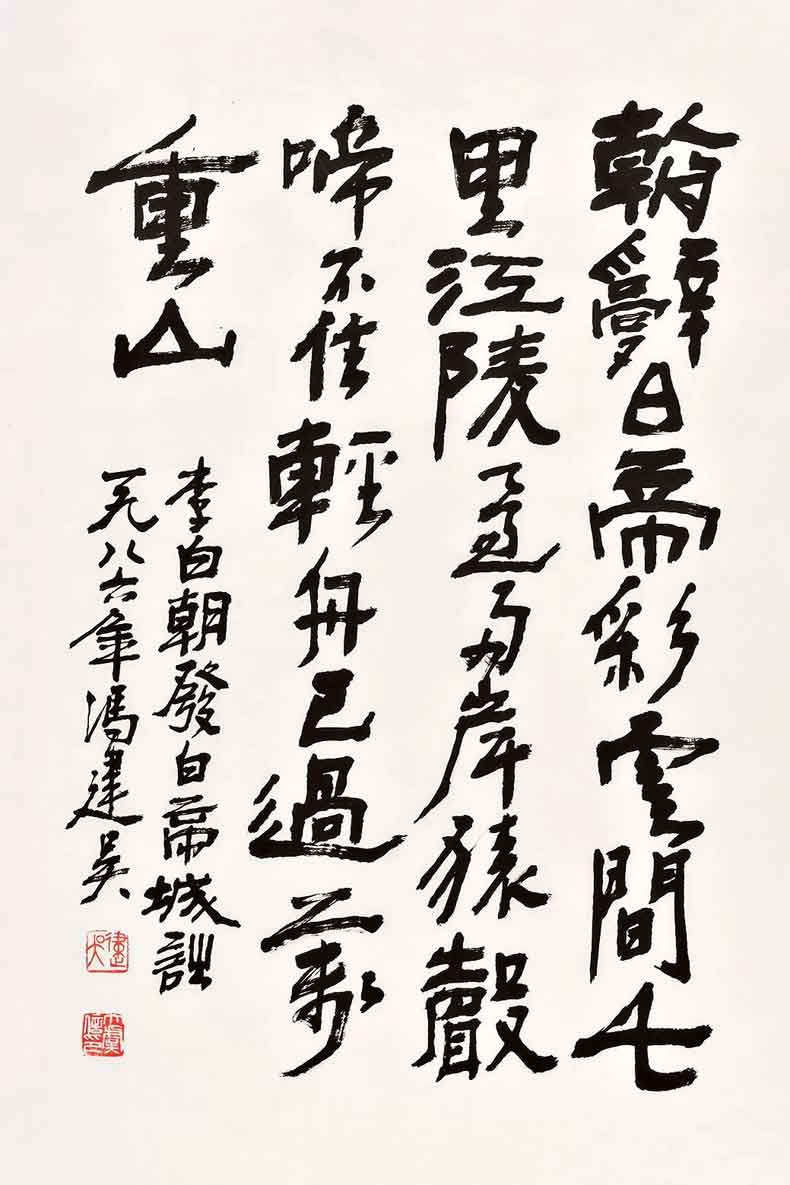 朝辭白帝彩雲間千
里江陵一日還兩岸猿聲
啼不住輕舟已過萬
重山
李白朝發白帝城詩
一九八六年馮建吴